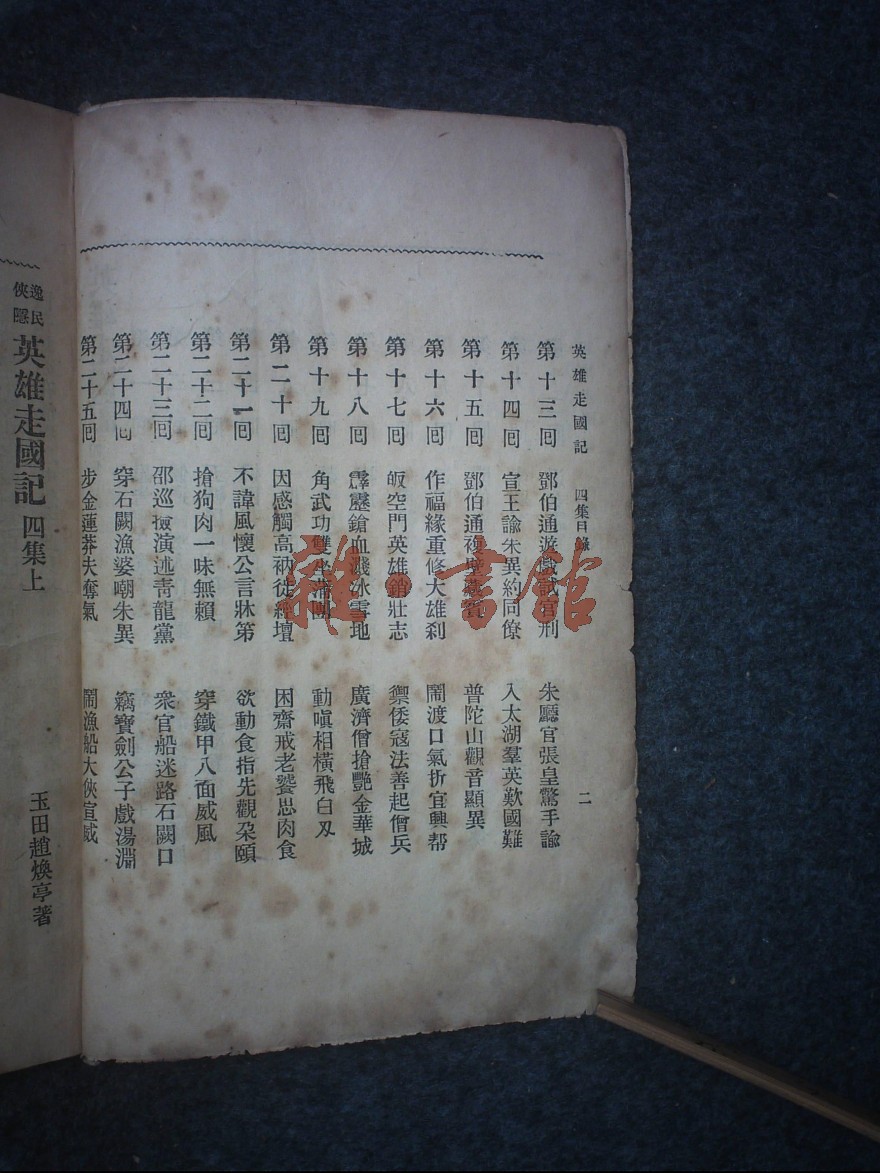 英雄走國記 四集目錄 二
第十三囘 鄧伯通遊戲試官刑 朱廳官張皇驚手諭
第十四囘 宣王諭朱異約同僚 入太湖羣英歎國難
第十五囘 鄧伯通複壁 普陀山觀音顯異
第十六囘 作福緣重修大雄刹 鬧渡口氣折宜興帮
第十七囘 皈空門英雄銷壯志 禦倭寇法善起僧兵
第十八囘 霹靂鎗血濺冰雪地 廣濟僧搶艷金華城
第十九囘 角武功雙坐蒲團 動嗔相橫飛白刄
第二十囘 因感觸高衲徒經壇 困齋戒老饕思肉食
第二十一囘 不諱風懷公言牀第 欲動食指先觀朶頤
第二十二囘 搶狗肉一味無賴 穿鐵甲八面威風
第二十三囘 邵巡檢演述靑龍黨 衆官船迷路石闕口
第二十四囘 穿石闕漁婆嘲朱異 竊寶劍公子戲湯淵
第二十五囘 步金蓮莽夫奪氣 鬧漁船大俠宣威
逸民俠隱
英雄走國記 四集上
玉田趙煥亭著
雜·書館